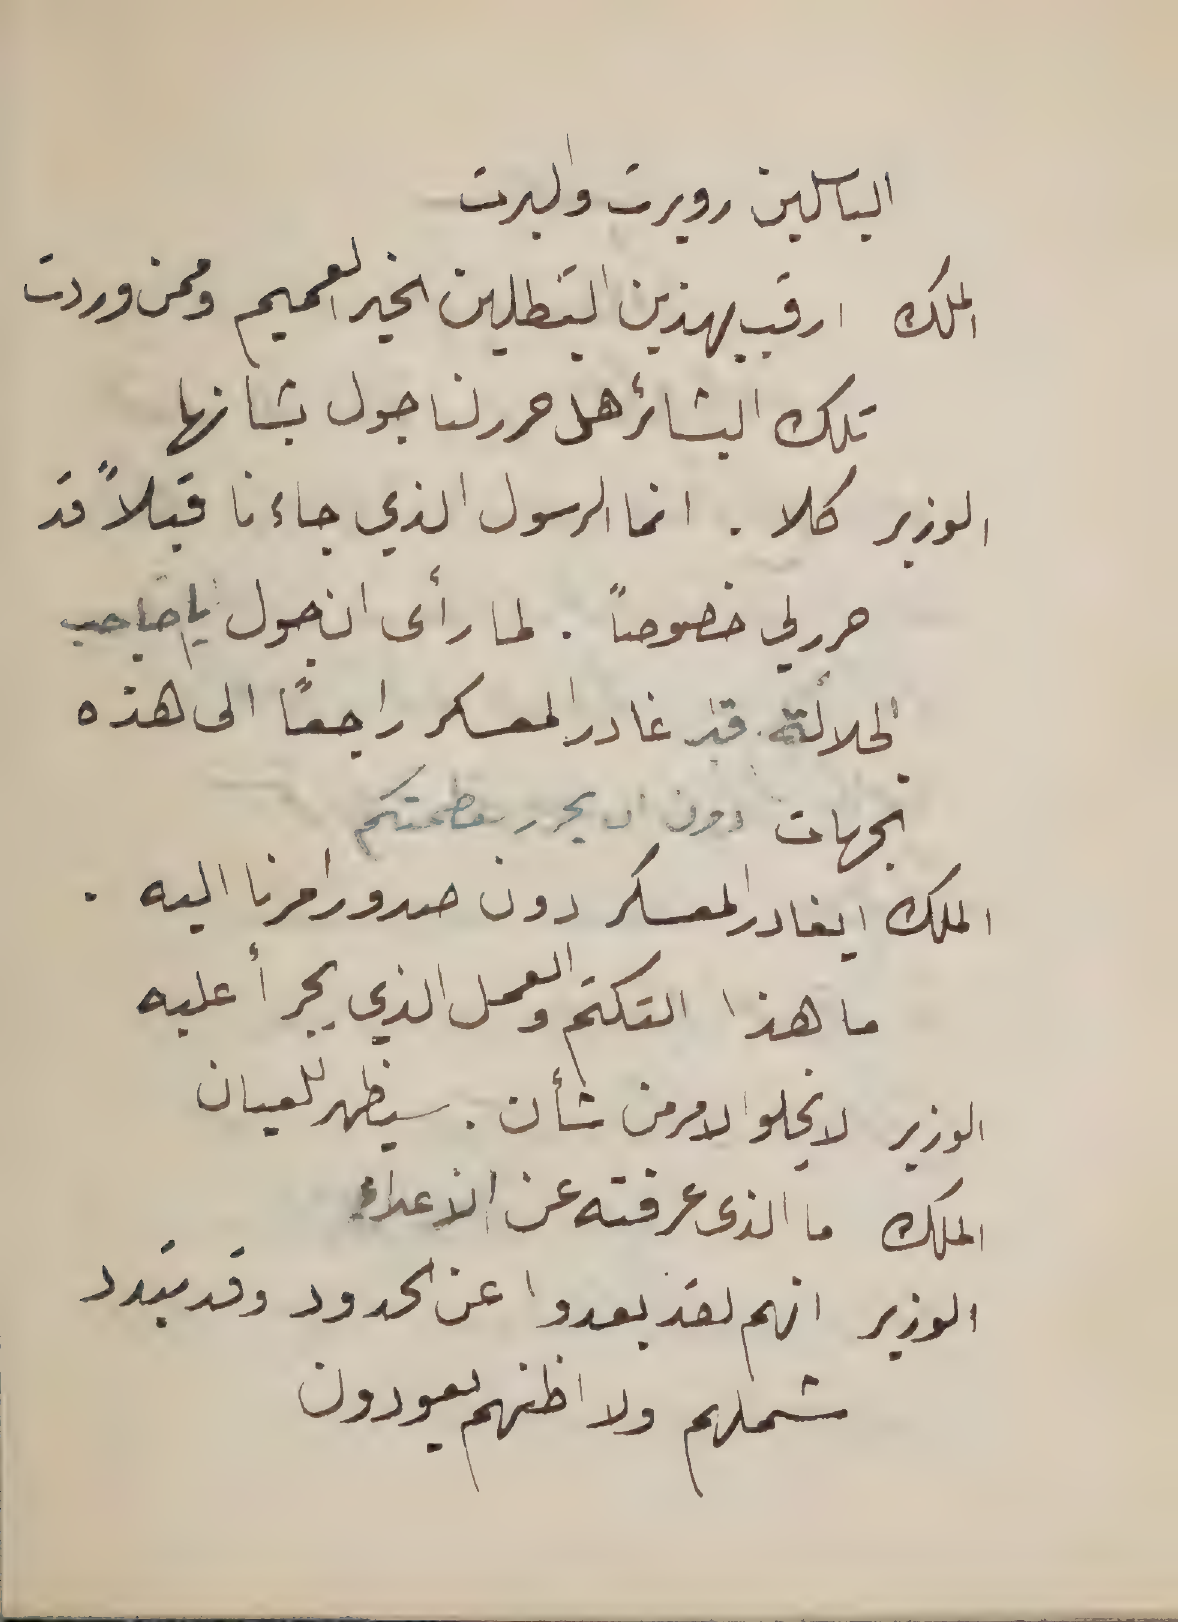 الباسلين روبرت والبرت
الملك ارقب بهذين البطلين الخير العميم وممن وردت
تلك البشائر هل حرر لنا جول بشانها
الوزير كلا . انما الرسول الذي جاءنا قبلاً قد
حرر لي خصوصاً . لما رأى ان جول يا صاحب
الجلالة قد غادر المعسكر راجعاً الى هذه
الجهات دون ان يحرر لعظمتكم
الملك ايغادر المعسكر دون صدور امرنا اليه .
ما هذا التكتم والعمل الذي يجرأ عليه
الوزير لا يخلو الامر من شأن . سيظهر للعيان
الملك ما الذى عرفته عن الاعداء
الوزير انهم لقد بعدوا عن الحدود وقد تبدد
شملهم ولا اظنهم يعودون